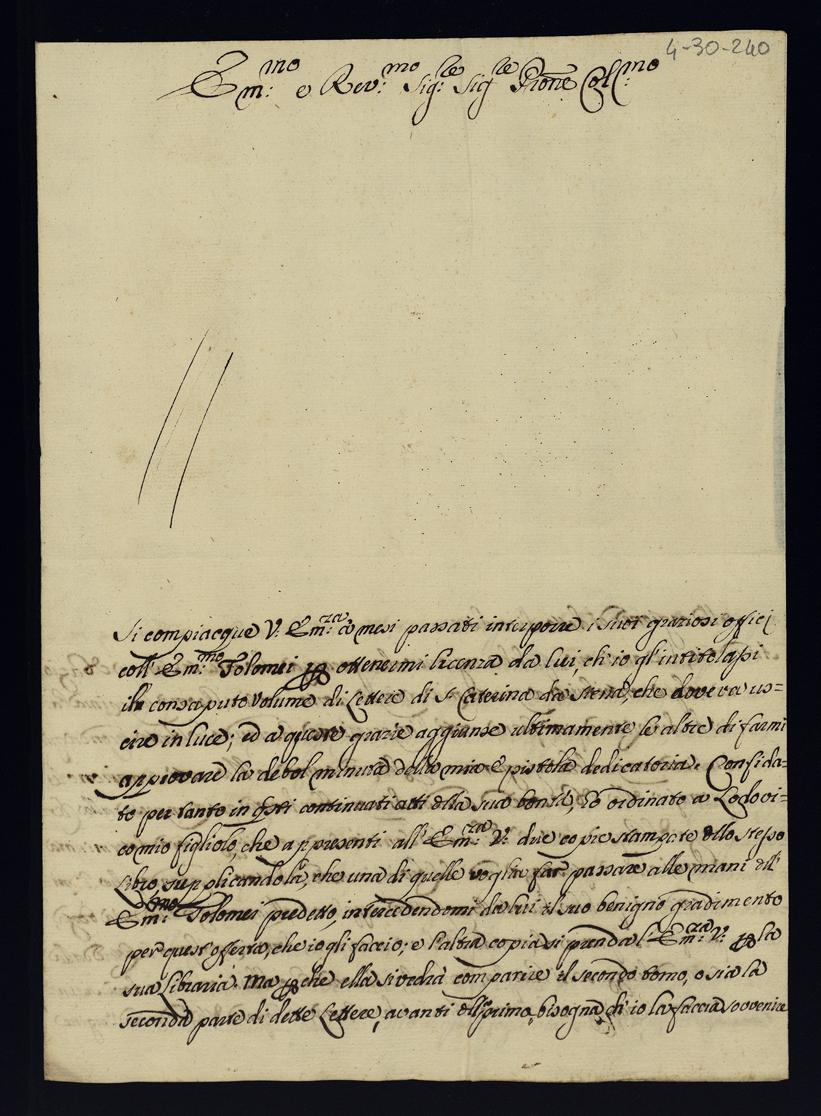 4-30-240
Em:mo e Rev:mo Sig:re Sig:re Prone Col:mo
Si compiacque V: Em:za a mesi passati interporre i suoi graziosi offici
coll' Em:mo Tolomei per ottenermi licenza da lui, ch'io gl'intitolassi
il consaputo Volume di Lettere di S. Caterina da Siena, che doveva us=
cire in luce; ed a queste grazie aggiunse ultimamente le altre di farmi
approvare la debol minuta della mia Epistola dedicatoria. Confida=
to per tanto in questi continuati atti della sua bontà, ò ordinato a Lodovi=
co mio figliolo, che appresenti all' Em:za V: due copie stampate dello stesso
Libro, supplicandola, che una di quelle voglia far passare alle mani dell'
Em:mo Tolomei predetto, intercedendomi da lui il suo benigno gradimento
per quest'offerta, che io gli faccio; e l'altra copia si prenda l'Em:za V: per la
sua Libraria. Ma perche ella si vedrà comparire il secondo tomo, o sia la
seconda parte di dette Lettere, avanti della prima, bisogna ch'io la faccia sovvenire